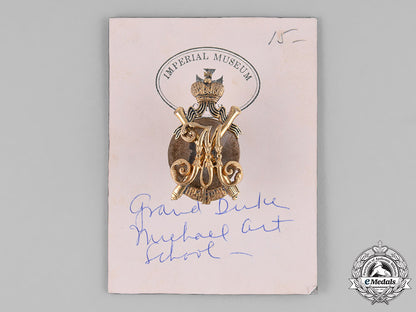 15-
IMPERIAL MUSEUM
Grand Duke
Michael Art
School -
eMedals